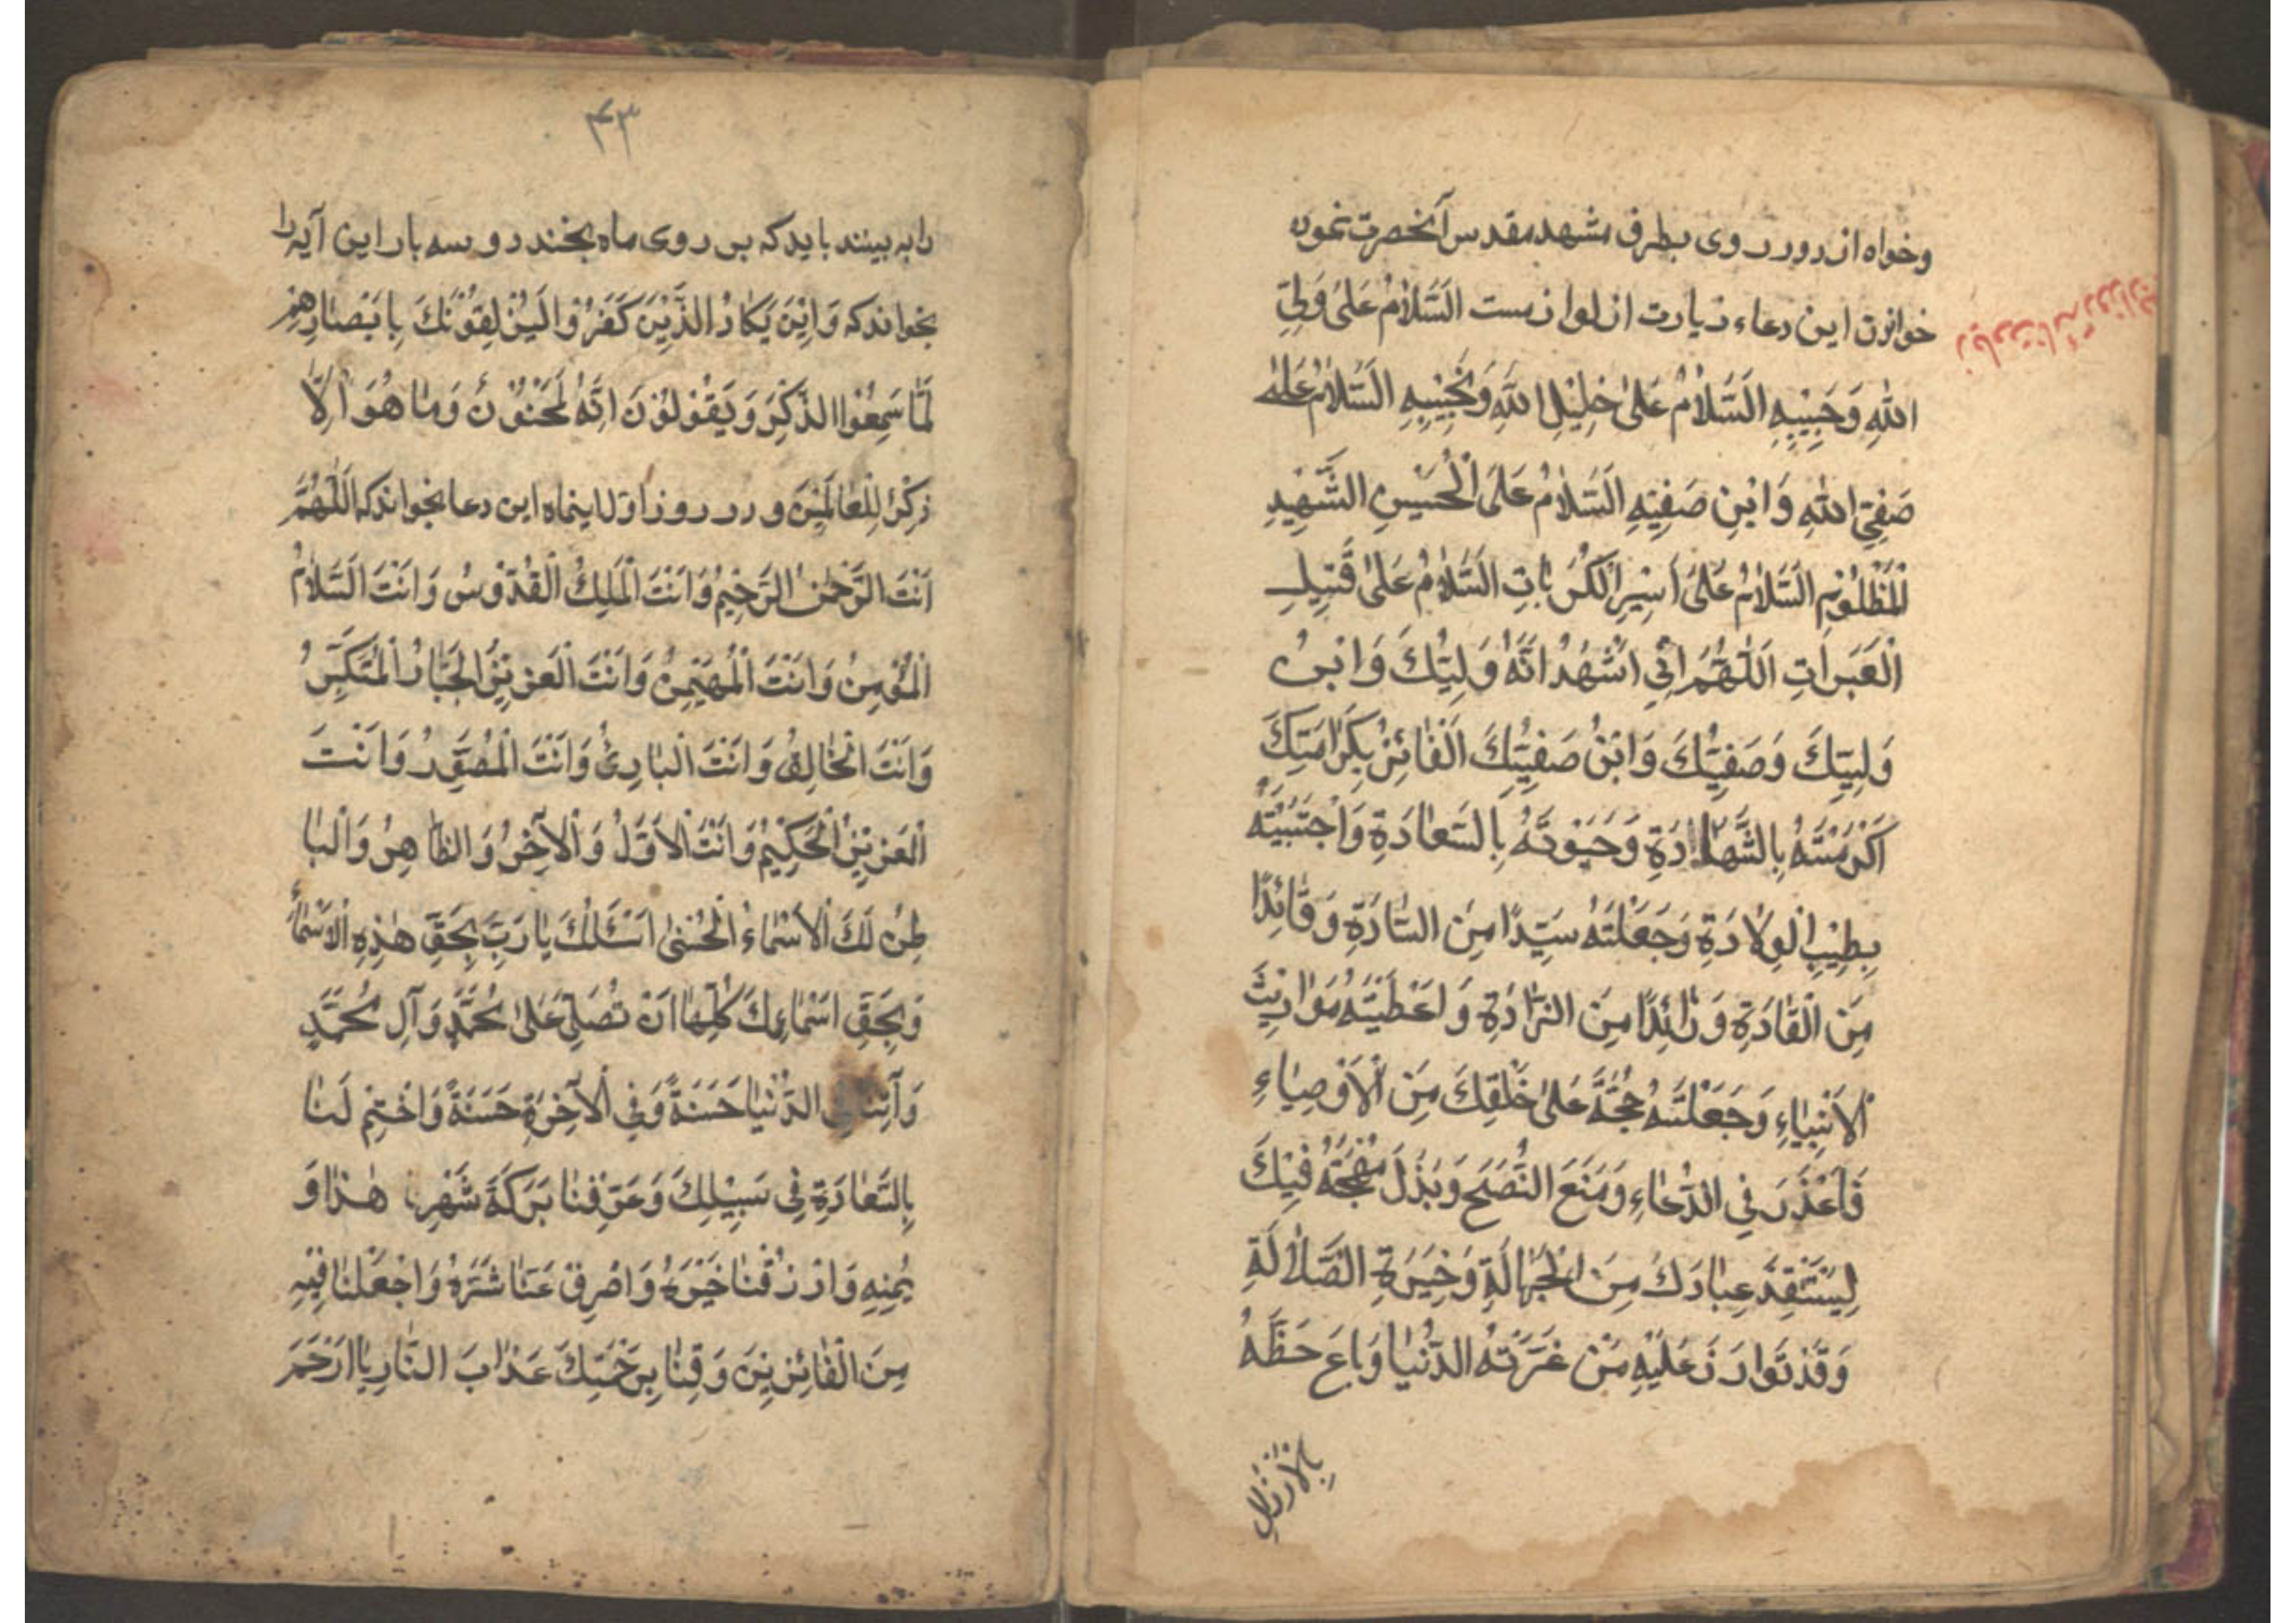 وخواه از دور روی بطرف مشهد مقدس آنحضرت نموده
خواندن این دعاء زیارت از لوازمست اَلسَّلَامُ عَلیٰ وَلِیِّ
اللّٰهِ وَحَبِیْبِهِ اَلسَّلَامُ عَلیٰ خَلِیْلِ اللّٰهِ وَنَجِیْبِهِ اَلسَّلَامُ عَلیٰ
صَفِیِّ اللّٰهِ وَابْنِ صَفِیِّهِ اَلسَّلَامُ عَلَی الْحُسَیْنِ الشَّهِیْدِ
الْمَظْلُوْمِ اَلسَّلَامُ عَلیٰ اَسِیْرِ الْکُرُبَاتِ اَلسَّلَامُ عَلیٰ قَتِیْلِ
الْعَبَرَاتِ اَللّٰهُمَّ اِنِّی اَشْهَدُ اَنَّهُ وَلِیُّكَ وَابْنُ
وَلِیِّكَ وَصَفِیُّكَ وَابْنُ صَفِیِّكَ الْفَائِزُ بِکَرَامَتِكَ
اَکْرَمْتَهُ بِالشَّهَادَةِ وَحَبَوْتَهُ بِالسَّعَادَةِ وَاجْتَبَیْتَهُ
بِطِیْبِ الْوِلَادَةِ وَجَعَلْتَهُ سَیِّدًا مِنَ السَّادَةِ وَقَائِدًا
مِنَ الْقَادَةِ وَذَائِدًا مِنَ الذَّادَةِ وَاَعْطَیْتَهُ مَوَارِیْثَ
الْاَنْبِیَاءِ وَجَعَلْتَهُ حُجَّةً عَلیٰ خَلْقِكَ مِنَ الْاَوْصِیَاءِ
فَاَعْذَرَ فِی الدُّعَاءِ وَمَنَعَ النُّصْحَ وَبَذَلَ مُهْجَتَهُ فِیْكَ
لِیَسْتَنْقِذَ عِبَادَكَ مِنَ الْجَهَالَةِ وَحَیْرَةِ الضَّلَالَةِ
وَقَدْ تَوَازَرَ عَلَیْهِ مَنْ غَرَّتْهُ الدُّنْیَا وَبَاعَ حَظَّهُ
بِالْاَرْذَلِ
۴۳
را به بینند باید که بر روی ماه بخندد و سه بار این آیه را
بخواند که وَاِنْ یَکَادُ الَّذِیْنَ کَفَرُوْا لَیُزْلِقُوْنَكَ بِاَبْصَارِهِمْ
لَمَّا سَمِعُوا الذِّکْرَ وَیَقُوْلُوْنَ اِنَّهُ لَمَجْنُوْنٌ وَمَا هُوَ اِلَّا
ذِکْرٌ لِلْعَالَمِیْنَ و در روز اول اینماه این دعا بخواند که اَللّٰهُمَّ
اَنْتَ الرَّحْمٰنُ الرَّحِیْمُ وَاَنْتَ الْمَلِكُ الْقُدُّوْسُ وَاَنْتَ السَّلَامُ
الْمُؤْمِنُ وَاَنْتَ الْمُهَیْمِنُ وَاَنْتَ الْعَزِیْزُ الْجَبَّارُ الْمُتَکَبِّرُ
وَاَنْتَ الْخَالِقُ وَاَنْتَ الْبَارِئُ وَاَنْتَ الْمُصَوِّرُ وَاَنْتَ
الْعَزِیْزُ الْحَکِیْمُ وَاَنْتَ الْاَوَّلُ وَالْاٰخِرُ وَالظَّاهِرُ وَالْبَا
طِنُ لَكَ الْاَسْمَاءُ الْحُسْنیٰ اَسْئَلُكَ یَا رَبِّ بِحَقِّ هٰذِهِ الْاَسْمَاءِ
وَبِحَقِّ اَسْمَائِكَ کُلِّهَا اَنْ تُصَلِّیَ عَلیٰ مُحَمَّدٍ وَآلِ مُحَمَّدٍ
وَآتِنَا فِی الدُّنْیَا حَسَنَةً وَفِی الْاٰخِرَةِ حَسَنَةً وَاخْتِمْ لَنَا
بِالسَّعَادَةِ فِی سَبِیْلِكَ وَعَرِّفْنَا بَرَکَةَ شَهْرِنَا هٰذَا وَ
یُمْنِهِ وَارْزُقْنَا خَیْرَهُ وَاصْرِفْ عَنَّا شَرَّهُ وَاجْعَلْنَا فِیْهِ
مِنَ الْفَائِزِیْنَ وَقِنَا بِرَحْمَتِكَ عَذَابَ النَّارِ یَا اَرْحَمَ